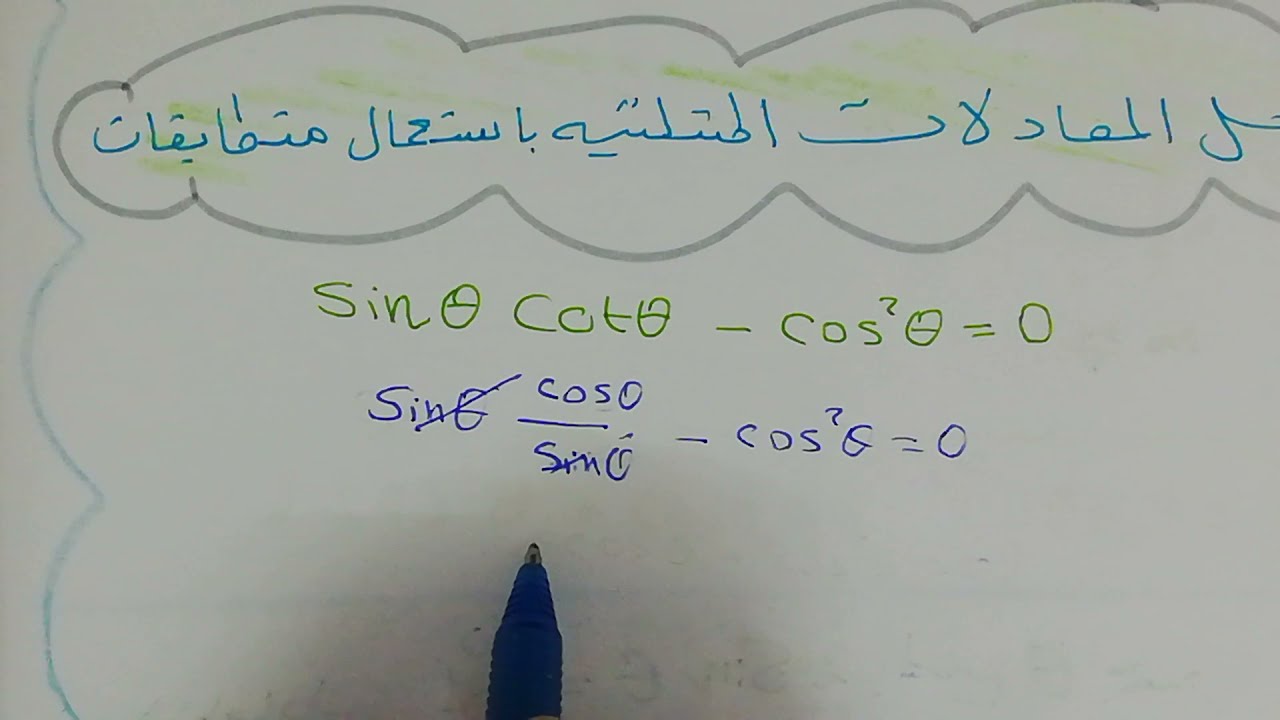 حل المعادلات المثلثيه باستعمال متطابقات
Sin θ Cotθ − cos²θ = 0
Sinθ cosθ/Sinθ − cos²θ = 0